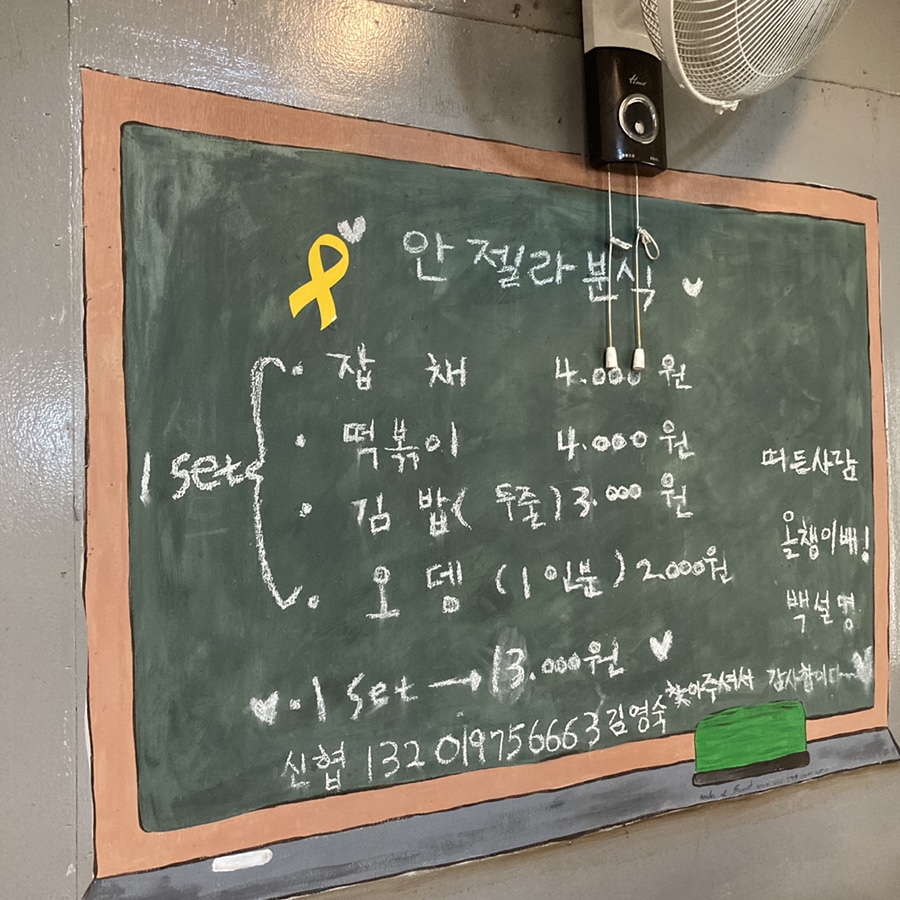 안젤라분식
1 set
· 잡 채 4.000원
· 떡볶이 4.000원
· 김 밥( 두줄)3.000원
· 오 뎅 (1인분) 2000원
· 1 set → 13.000원
떠든사람
올챙이배!
백설명
찾아주셔서 감사합니다~
신협 132 019756663 김영숙